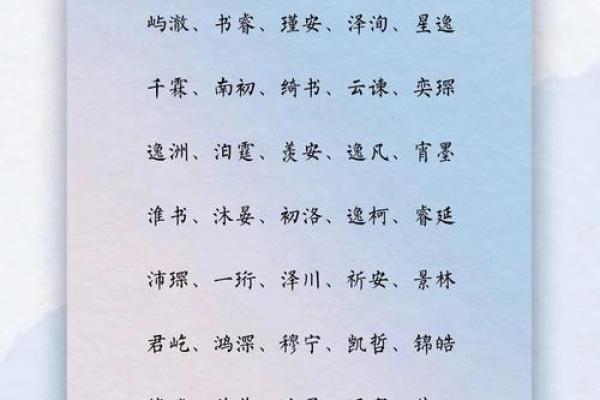 屿澈、书睿、瑾安、泽洵、星逸
千霖、南初、绮书、云谏、奕琛
逸洲、泊霆、羡安、逸凡、宵墨
淮书、沐晏、初洛、逸柯、睿延
沛琛、一珩、泽川、祈安、景林
君屹、鸿深、穆宁、凯哲、锦皓